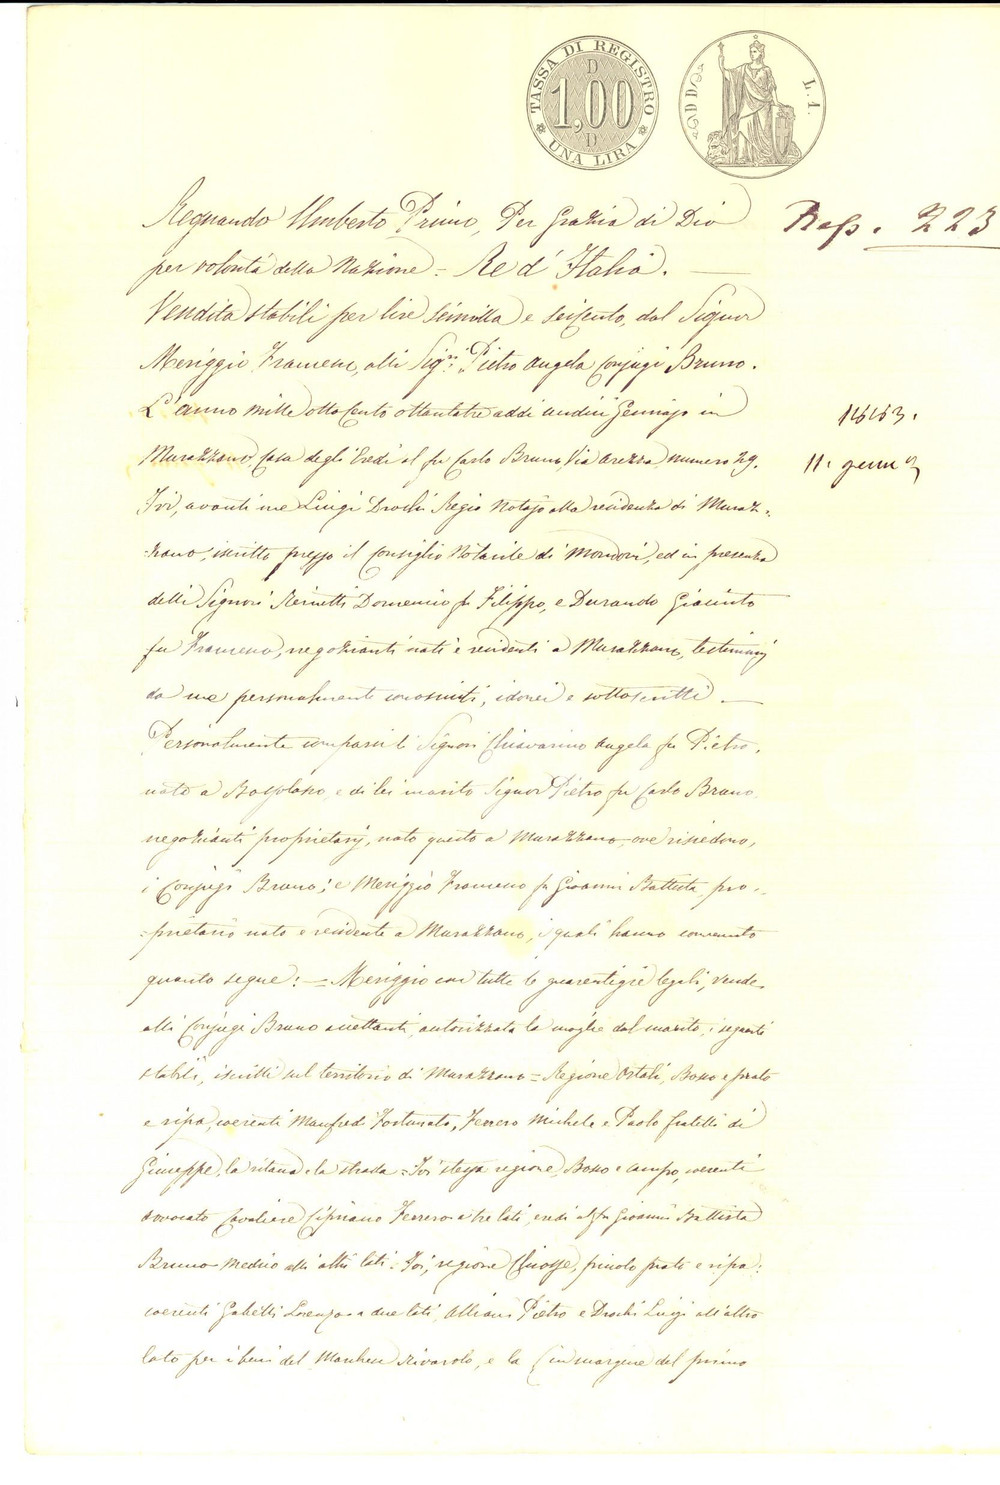 TASSA DI REGISTRO
D
1,00
D
UNA LIRA
DD
L. 1.
Regnando Umberto Primo, Per Grazia di Dio
per volontà della Nazione = Re d'Italia.
Rep. 223
Vendita stabili per lire seimilla e seicento, dal Signor
Meriggio Francesco, alli Sig.ri Pietro Angela Conjugi Bruno.
L'anno mille otto cento ottantatre addi undici Gennajo in
Murazzano, Casa degli Eredi al fu Carlo Bruno, Via Arezza, numero 29.
11. genn
Ivi, avanti me Luigi Drochi Regio Notajo alla residenza di Muraz-
-zano, iscritto presso il Consiglio Notarile di Mondovì, ed in presenza
delli Signori Domenico fu Filippo, e Durando Giacinto
fu Francesco, negozianti nati e residenti a Murazzano, testimonj
da me personalmente conosciuti, idonei e sottoscritti
Personalmente comparsi li Signori Chiavarino Angela fu Pietro,
nata a e di lei marito Signor Pietro fu Carlo Bruno
negozianti proprietarj, nato questo a Murazzano ove risiedono,
i Conjugi Bruno; e Meriggio Francesco fu Giovanni Battista, pro-
-prietario nato e residente a Murazzano, i quali hanno convenuto
quanto segue: = Meriggio con tutte le guarentigie legali, vende
alli Conjugi Bruno accettanti, autorizzata la moglie dal marito, i seguenti
stabili, iscritti sul territorio di Murazzano = Regione Ostali, Bosco e prato
e ripa, coerenti Manfredi Fortunato, Ferrero Michele e Paolo fratelli di
Giuseppe, la ritana e la strada = Ivi stessa regione, Bosco e campo, coerenti
Avvocato Cavaliere Cipriano Ferrero a tre lati, eredi al fu Giovanni Battista
Bruno Medico alli altri lati = Ivi, regione Chiosse, piccolo prato e ripa:
coerenti Gabetti Lorenzo a due lati, Alliani Pietro e Drochi Luigi all'altro
lato per i beni del Marchese Rivarolo, e la (in margine del primo